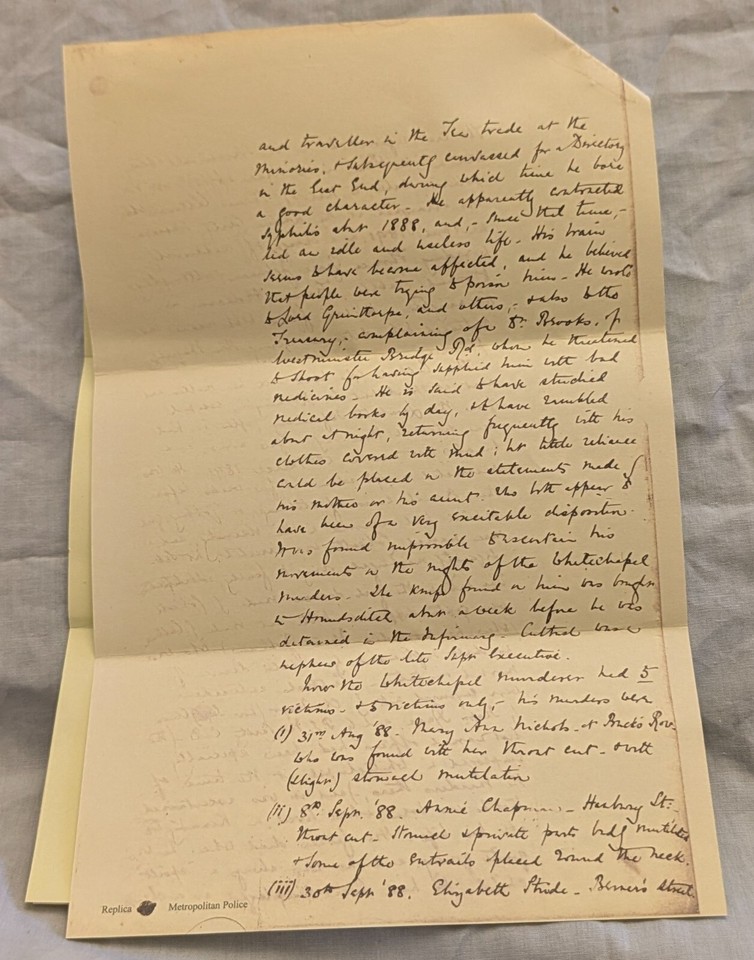 and traveller in the Tea trade at the
Minories, & subsequently canvassed for a Directory
in the East End, during which time he bore
a good character - He apparently contracted
syphilis abt 1888, and, - since that time, -
led an idle and useless life - His brain
seems to have become affected, and he believed
that people were trying to poison him - He wrote
to Lord Grimthorpe, and others, - & also to the
Treasury, - complaining of a Dr. Brooks, of
Westminster Bridge Rd, whom he threatened
to shoot for having supplied him with bad
medicines - He is said to have studied
medical books by day, & to have rambled
about at night, returning frequently with his
clothes covered with mud; but little reliance
could be placed on the statements made by
his mother or his aunt who both appear to
have been of a very excitable disposition.
It was found impossible to ascertain his
movements on the nights of the Whitechapel
murders - The knife found on him was bought
in Houndsditch about a week before he was
detained in the Infirmary. Cutbush was a
nephew of the late Supt Executive.
Now the Whitechapel murderer had 5
victims - & 5 victims only, - his murders were
(i) 31st Aug '88. Mary Ann Nichols - at Buck's Row.
who was found with her throat cut - & with
(slight) stomach mutilation
(ii) 8th Sept. '88. Annie Chapman - Hanbury St:-
throat cut - stomach & private parts badly mutilated
& some of the entrails placed round the neck.
(iii) 30th Sept '88. Elizabeth Stride - Berner's street
Replica Metropolitan Police